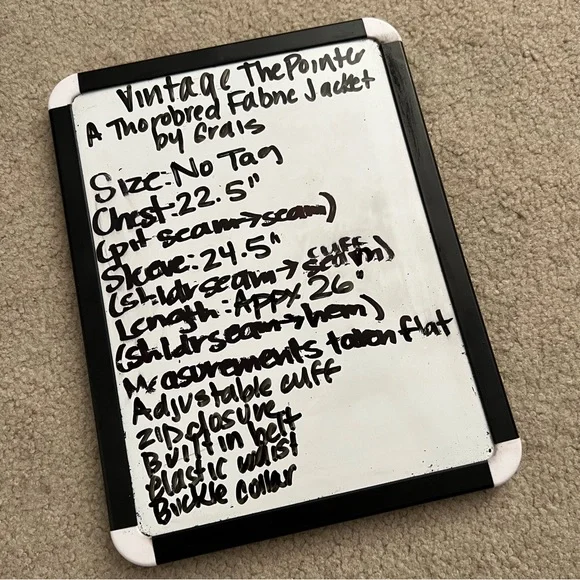 Vintage The Pointer
A Thorobred Fabric Jacket
by Grais
Size: No Tag
Chest: 22.5"
(pit seam→seam)
Sleeve: 24.5"
(shldr seam→ cuff seam)
Length: Appx 26"
(shldr seam→hem)
Measurements taken flat
Adjustable cuff
zip closure
Built in belt
elastic waist
Buckle collar